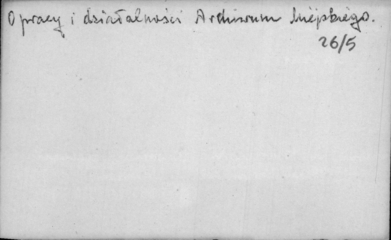 O pracy i działalności Archiwum Miejskiego.
26/5